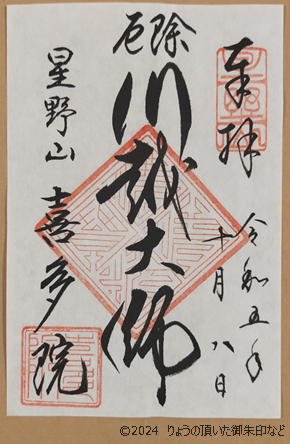 奉拝
令和五年
十月八日
厄除
川越大師
星野山
喜多院
©2024 りょうの頂いた御朱印など